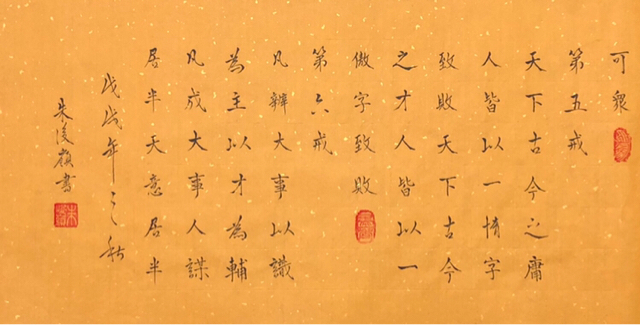 可衆
第五戒
天下古今之庸
人皆以一惰字
致敗天下古今
之才人皆以一
傲字致敗
第六戒
凡辦大事以識
為主以才為輔
凡成大事人謀
居半天意居半
戊戌年之秋
朱書